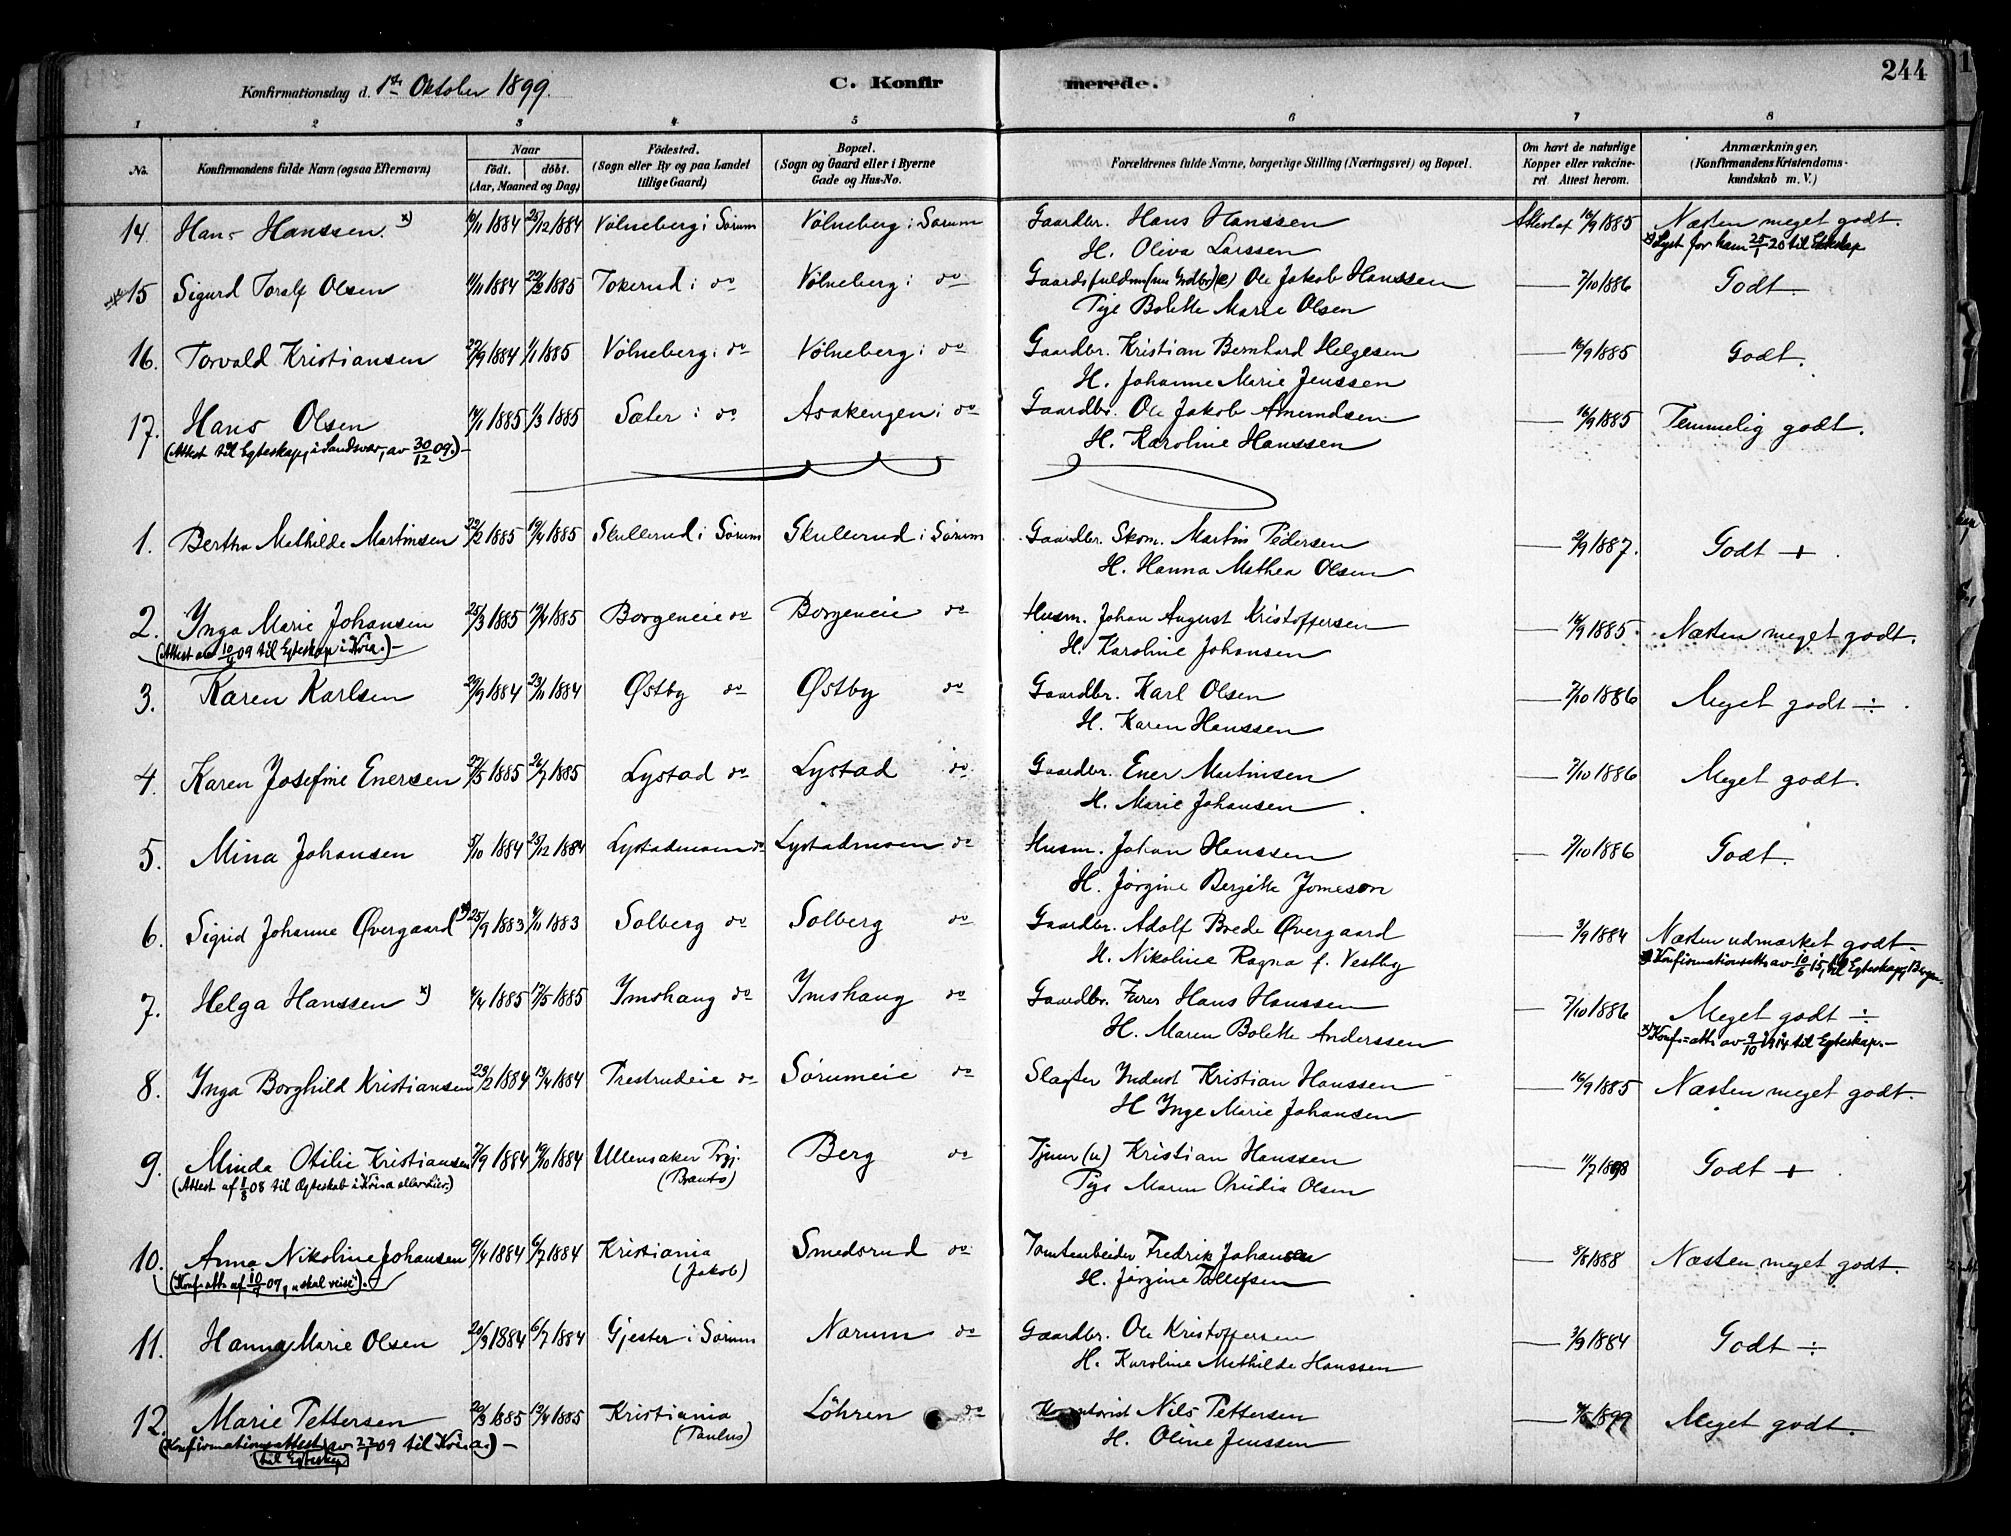 244
Konfirmationsdag d. 1ste Oktober 1899.
C. Konfirmerede.
1 2 3 4 5 6 7 8
No. Konfirmandens fulde Navn (ogsaa Efternavn) Naar født. døbt. (Aar, Maaned og Dag) Fødested. (Sogn eller By og paa Landet tillige Gaard) Bopæl. (Sogn og Gaard eller i Byerne Gade og Hus-No. Forældrenes fulde Navne, borgerlige Stilling (Næringsvei) og Bopæl. Om havt de naturlige Kopper eller vakcineret. Attest herom. Anmærkninger. (Konfirmandens Kristendomskundskab m. V.)
14. Hans Hanssen. x) 16/11 1884 25/12 1884 Vølneberg i Sørum Vølneberg i Sørum Gaardbr. Hans Hanssen Attest af 16/9 1885 Næsten meget godt.
H. Oliva Larssen x) Lyst for ham 25/7 20 til Ekteskap
15 Sigurd Toralf Olsen 11/11 1884 22/2 1885 Tokerud i do Vølneberg i do Ole Jakob Hanssen — 7/10 1886 Godt.
Pige Bolette Marie Olsen
16. Torvald Kristiansen 22/9 1884 1/1 1885 Vølneberg i do Vølneberg i do Gaardbr. Kristian Bernhard Helgesen — 16/9 1885 Godt.
H. Johanne Marie Jenssen
17. Hans Olsen 14/1 1885 1/3 1885 Sæter i do Asakengen i do Gaardbr. Ole Jakob Amundsen — 16/9 1885 Temmelig godt.
(Attest til Egteskap, i Sandsvær, av 30/12 09.)— H. Karoline Hanssen
1. Bertha Mathilde Martinsen 22/2 1885 12/4 1885 Skullerud i Sørum Skullerud i Sørum Gaardbr. Skom. Martin Pedersen — 2/9 1887. Godt +.
H. Hanna Mathea Olsen
2. Inga Marie Johansen 25/3 1885 12/4 1885 Borgeneie do Borgeneie do Husm. Johan August Kristoffersen — 16/9 1885. Næsten meget godt.
(Attest av 10/9 09 til Egteskap i Kr.a.)— H. Karoline Johansen
3. Karen Karlsen 29/9 1884 23/11 1884 Østby do Østby do Gaardbr. Karl Olsen — 7/10 1886 Meget godt ÷.
H. Karen Hanssen
4. Karen Josefine Enersen 27/5 1885 26/7 1885 Lystad do Lystad do Gaardbr. Ener Martinsen — 7/10 1886 Meget godt.
H. Marie Johansen
5. Mina Johansen 5/10 1884 25/12 1884 Lystadmoen do Lystadmoen do Husm. Johan Hanssen — 7/10 1886 Godt.
H. Jørgine Bergitte
6. Sigrid Johanne Øvergaard x) 25/9 1883 4/11 1883 Solberg do Solberg do Gaardbr. Adolf Brede Øvergaard — 3/9 1884 Næsten udmærket godt.
H. Nikoline Ragna f. Vestby x) Konfirmationsatts av 10/6 15, til Egteskap, Bergen.
7. Helga Hanssen x) 4/4 1885 17/5 1885 Imshaug do Imshaug do Gaardbr. Hans Hanssen — 7/10 1886 Meget godt ÷
H. Maren Bolette Anderssen x) Konf.=att. av 9/10 1914 til Egteskap.—
8. Inga Borghild Kristiansen 23/2 1884 13/4 1884 Prestrudeie do Sørumeie do Slagter Kristian Hanssen — 16/9 1885 Næsten meget godt.
H. Inge Marie Johansen
9. Minda Otilie Kristiansen 7/9 1884 19/10 1884 Ullensaker Prgj. Berg do Tjener (u) Kristian Hanssen — 11/7 1898 Godt +.
(Attest af 1/8 08 til Ægteskab i Kr.a eller her.) Pige Maren Olsen
10. Anna Nikoline Johansen 9/4 1884 6/7 1884 Kristiania Smedsrud do Tomtearbeider Fredrik Johansen — 8/8 1888 Næsten meget godt.
(Konf-att. af 10/9 07, „skal reise".)— (Jakob) H. Jørgine Tollefsen
11. Hanna Marie Olsen 20/3 1884 6/7 1884 Gjester i Sørum Narum do Gaardbr. Ole Kristoffersen — 3/9 1884 Godt ÷
H. Karoline Mathilde Hanssen
12. Marie Pettersen 20/3 1885 12/4 1885 Kristiania Løhren do Kontorist Nils Pettersen 1899 Meget godt.
(Konfirmationsattest av 27/7 09 til Kr.a.)— (Paulus) H. Oline Jenssen
til Egteskap